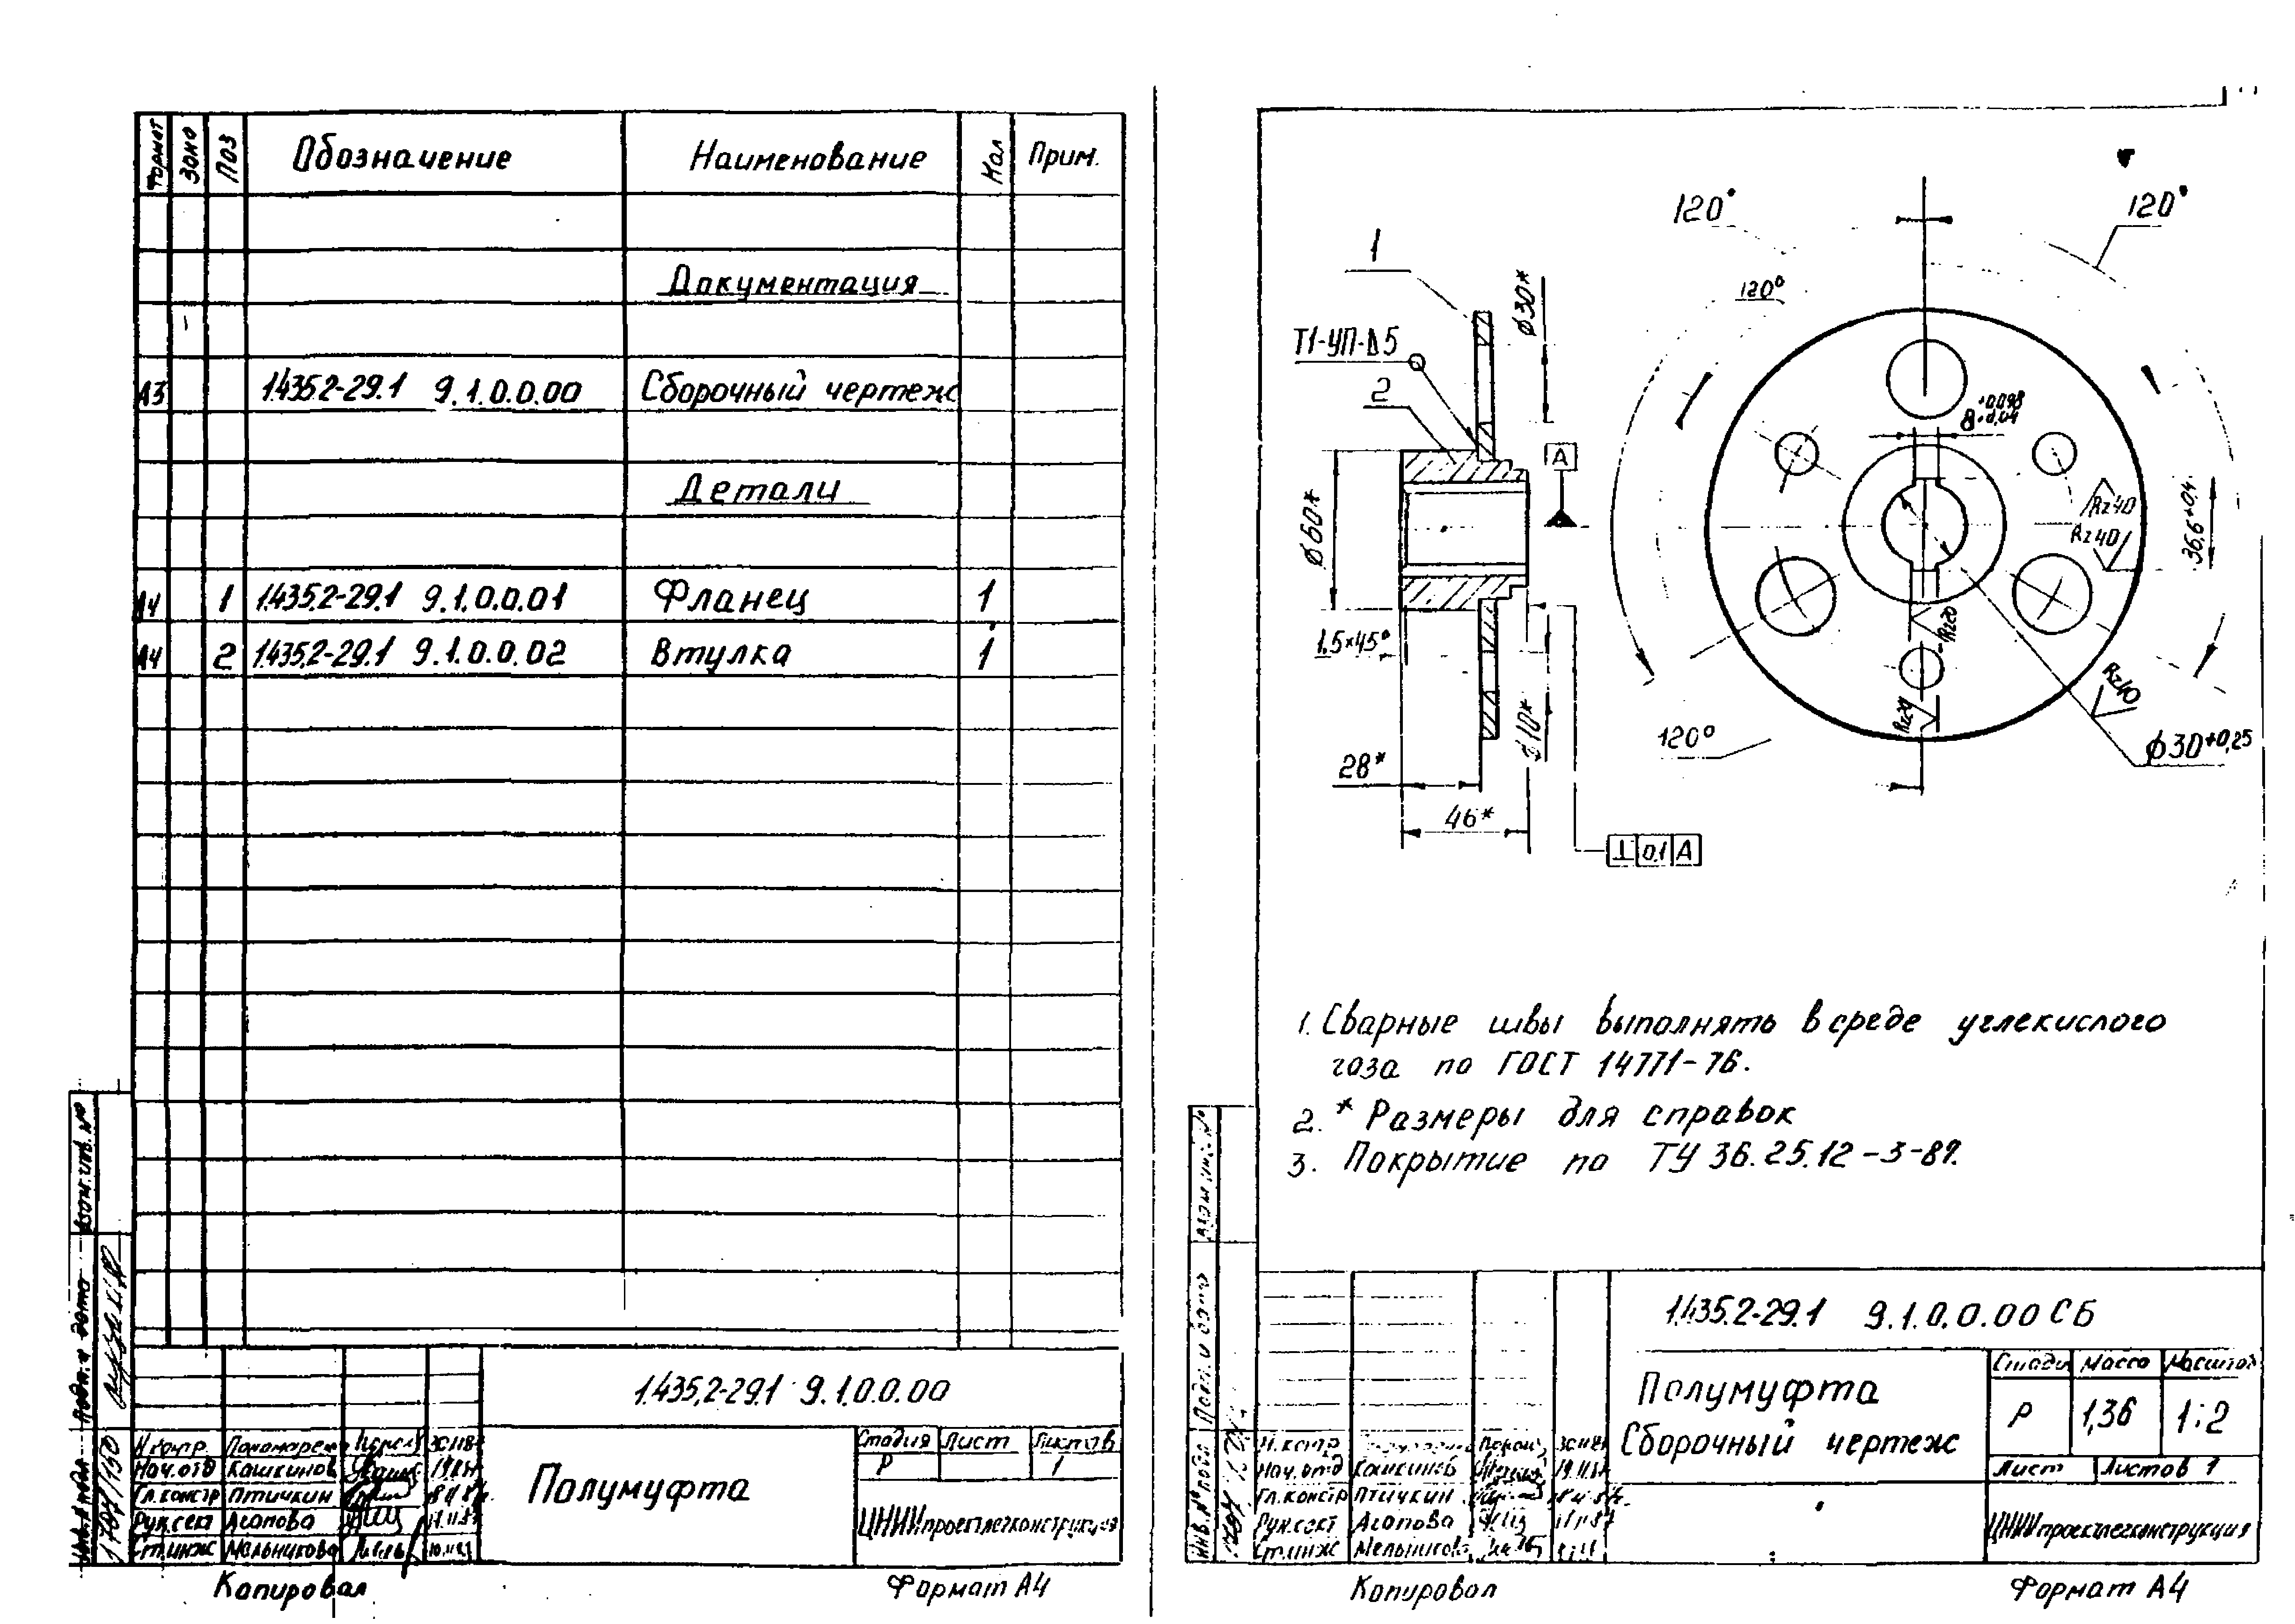 Формат Зона Поз Обозначение Наименование Кол Прим.
Документация
А3 1.435.2-29.1 9.1.0.0.00 Сборочный чертеж
Детали
А4 1 1.435.2-29.1 9.1.0.0.01 Фланец 1
А4 2 1.435.2-29.1 9.1.0.0.02 Втулка 1
1.435.2-29.1 9.1.0.0.00
Н.контр. Пономарев 30.11.87
Нач.отд Кашкинов
Гл.констр Птичкин
Рук.сект Агапова
Ст.инж Мельникова
Полумуфта
Стадия Лист Листов
Р 1
ЦНИИпроектлегконструкция
Взам.инв.№
Подп. и дата
Инв.№ подл
Копировал
Формат А4
120°
120°
120°
120°
1
Т1-УП-Δ5
2
ϕ30*
А
ϕ60*
1,5×45°
28*
46*
ϕ10*
⊥ 0,1 А
8 +0,098 +0,04
36,6+0,4
Rz40
Rz40
Rz20
Rz20
Rz40
ϕ30+0,25
1. Сварные швы выполнять в среде углекислого
газа по ГОСТ 14771-76.
2. * Размеры для справок
3. Покрытие по ТУ 36.25.12-3-89.
1.435.2-29.1 9.1.0.0.00 СБ
Полумуфта
Сборочный чертеж
Стади Масса Масштаб
Р 1,36 1:2
Лист Листов 1
ЦНИИпроектлегконструкция
Н.контр
Нач.отд Кашкинов
Гл.констр Птичкин
Рук.сект Агапова
Ст.инж Мельникова
Взам.инв.№
Подп. и дата
Инв.№ подл
Копировал
Формат А4